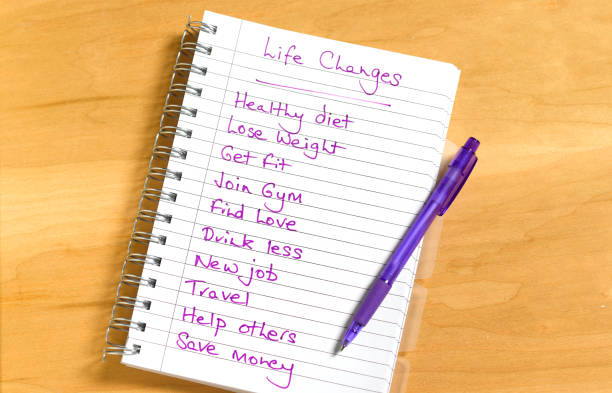 Life Changes
Healthy diet
Lose Weight
Get fit
Join Gym
Find Love
Drink less
New job
Travel
Help others
Save money